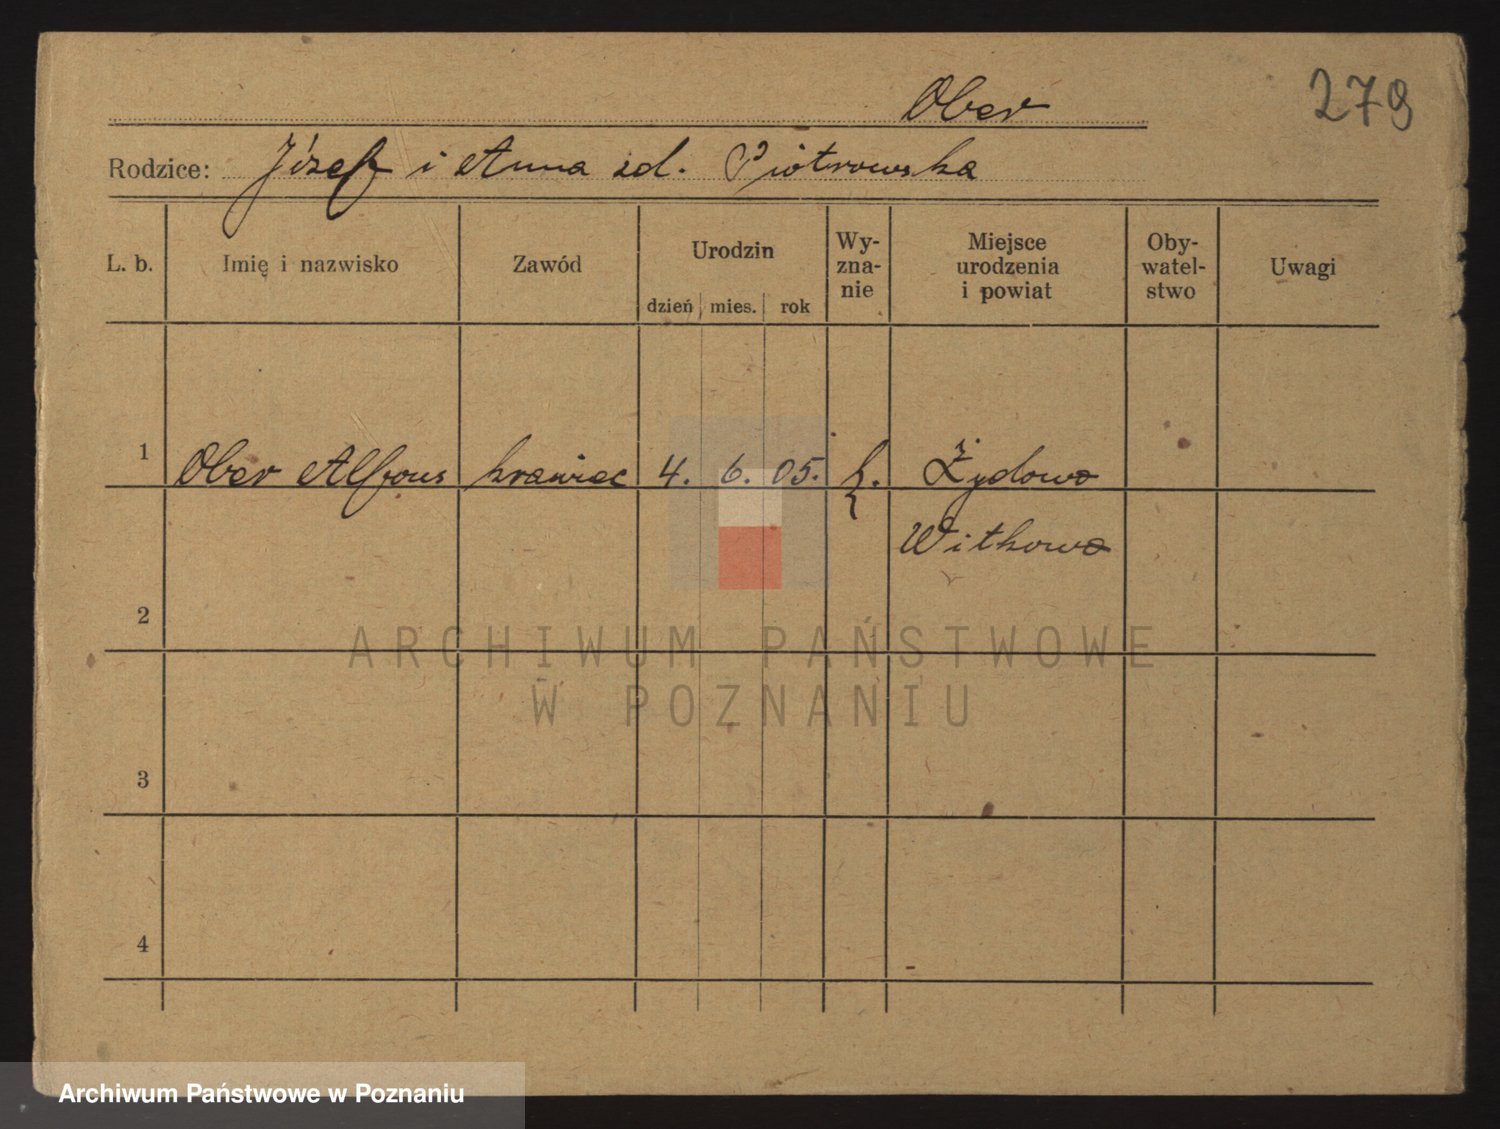 Ober
279
Rodzice: Józef i Anna zd. Piotrowska
L. b.
Imię i nazwisko
Zawód
Urodzin
dzień mies. rok
Wy-
zna-
nie
Miejsce
urodzenia
i powiat
Oby-
watel-
stwo
Uwagi
1 Ober Alfons krawiec 4. 6. 05. k. Żydowo
Witkowo
2
3
4
ARCHIWUM PAŃSTWOWE
W POZNANIU
Archiwum Państwowe w Poznaniu